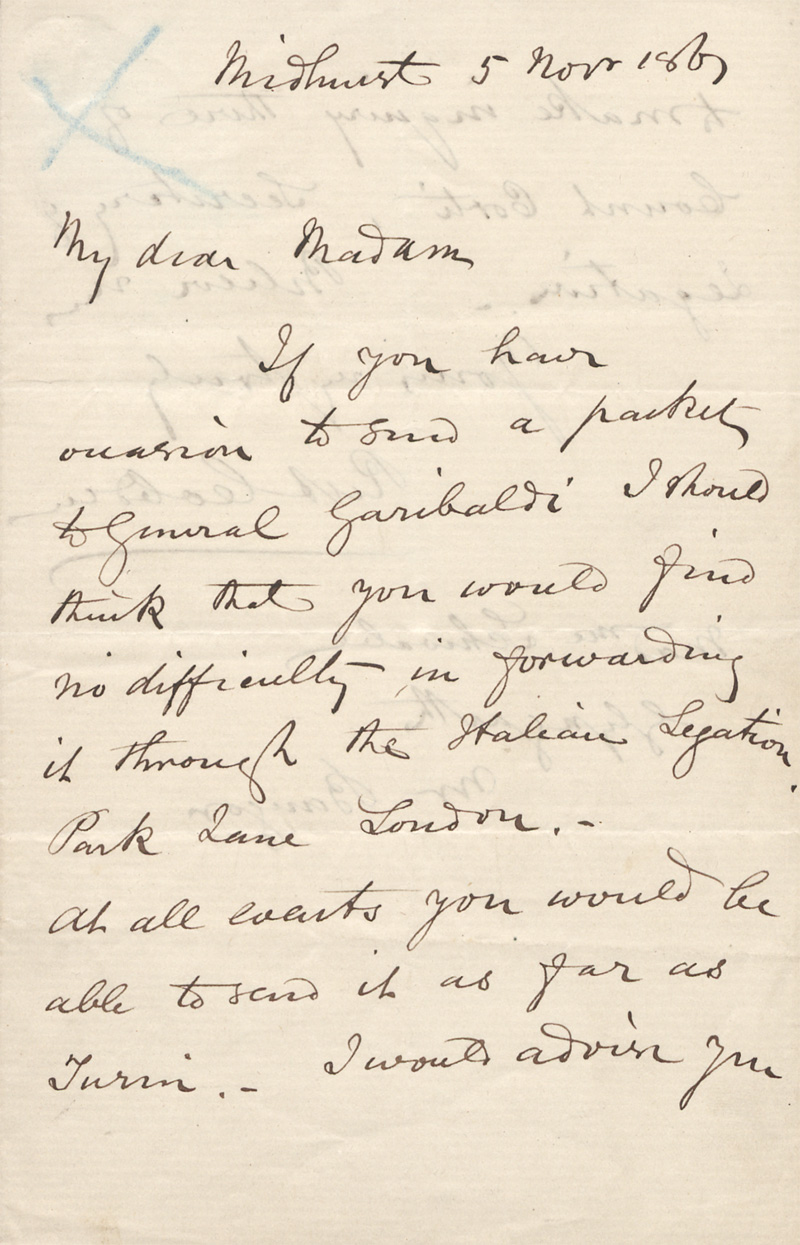 Midhurst 5 Novr 1861
My dear Madam
If you have
occasion to send a packet
to General Garibaldi I should
think that you would find
no difficulty in forwarding
it through the Italian Legation,
Park Lane London.-
At all events you would be
able to send it as far as
Turin.- I would advise you